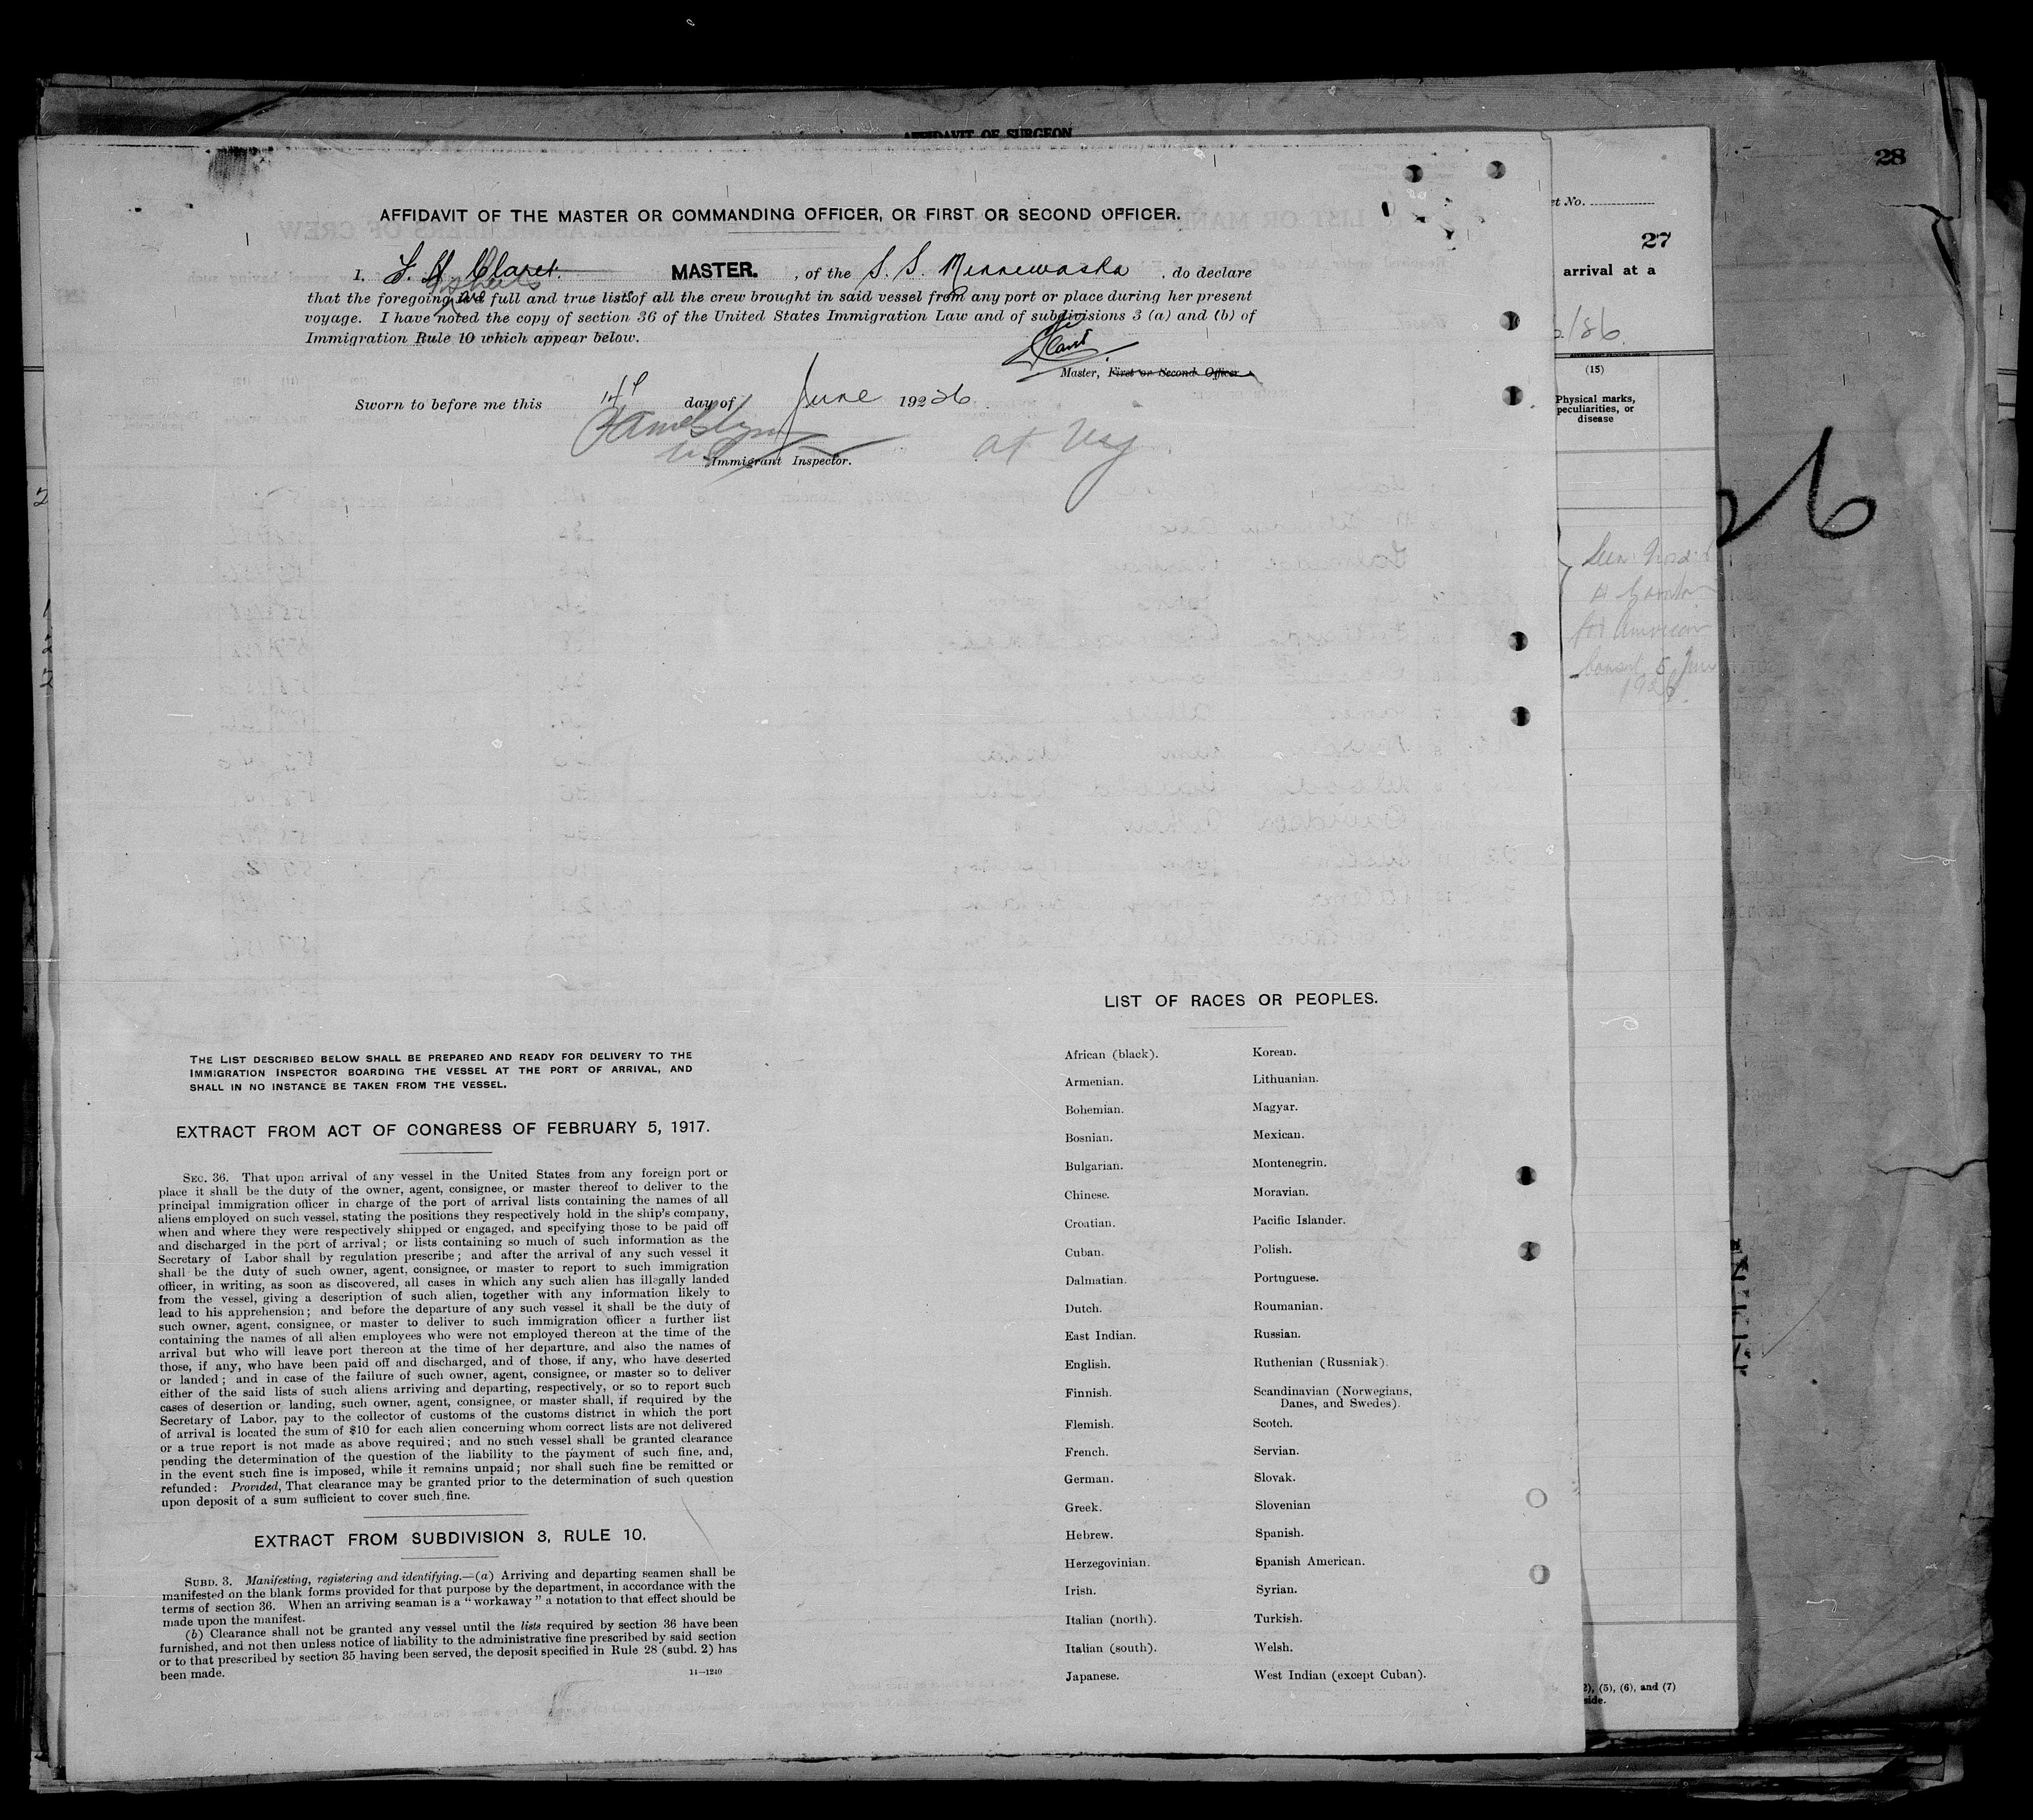 AFFIDAVIT OF SURGEON
28
AFFIDAVIT OF THE MASTER OR COMMANDING OFFICER, OR FIRST OR SECOND OFFICER.
I, Claret. MASTER. , of the S. S. Minnewaska , do declare
that the foregoing are full and true lists of all the crew brought in said vessel from any port or place during her present
voyage. I have noted the copy of section 36 of the United States Immigration Law and of subdivisions 3 (a) and (b) of
Immigration Rule 10 which appear below.
Master, First or Second Officer
Sworn to before me this day of June 1926
at
Immigrant Inspector.
t No.
27
arrival at a
(15)
Physical marks,
peculiarities, or
disease
26
for American
5 June
1926.
LIST OF RACES OR PEOPLES.
African (black). Korean.
Armenian. Lithuanian.
Bohemian. Magyar.
Bosnian. Mexican.
Bulgarian. Montenegrin.
Chinese. Moravian.
Croatian. Pacific Islander.
Cuban. Polish.
Dalmatian. Portuguese.
Dutch. Roumanian.
East Indian. Russian.
English. Ruthenian (Russniak).
Finnish. Scandinavian (Norwegians,
Danes, and Swedes).
Flemish. Scotch.
French. Servian.
German. Slovak.
Greek. Slovenian
Hebrew. Spanish.
Herzegovinian. Spanish American.
Irish. Syrian.
Italian (north). Turkish.
Italian (south). Welsh.
Japanese. West Indian (except Cuban).
THE LIST DESCRIBED BELOW SHALL BE PREPARED AND READY FOR DELIVERY TO THE
IMMIGRATION INSPECTOR BOARDING THE VESSEL AT THE PORT OF ARRIVAL, AND
SHALL IN NO INSTANCE BE TAKEN FROM THE VESSEL.
EXTRACT FROM ACT OF CONGRESS OF FEBRUARY 5, 1917.
SEC. 36. That upon arrival of any vessel in the United States from any foreign port or
place it shall be the duty of the owner, agent, consignee, or master thereof to deliver to the
principal immigration officer in charge of the port of arrival lists containing the names of all
aliens employed on such vessel, stating the positions they respectively hold in the ship's company,
when and where they were respectively shipped or engaged, and specifying those to be paid off
and discharged in the port of arrival; or lists containing so much of such information as the
Secretary of Labor shall by regulation prescribe; and after the arrival of any such vessel it
shall be the duty of such owner, agent, consignee, or master to report to such immigration
officer, in writing, as soon as discovered, all cases in which any such alien has illegally landed
from the vessel, giving a description of such alien, together with any information likely to
lead to his apprehension; and before the departure of any such vessel it shall be the duty of
such owner, agent, consignee, or master to deliver to such immigration officer a further list
containing the names of all alien employees who were not employed thereon at the time of the
arrival but who will leave port thereon at the time of her departure, and also the names of
those, if any, who have been paid off and discharged, and of those, if any, who have deserted
or landed; and in case of the failure of such owner, agent, consignee, or master so to deliver
either of the said lists of such aliens arriving and departing, respectively, or so to report such
cases of desertion or landing, such owner, agent, consignee, or master shall, if required by the
Secretary of Labor, pay to the collector of customs of the customs district in which the port
of arrival is located the sum of $10 for each alien concerning whom correct lists are not delivered
or a true report is not made as above required; and no such vessel shall be granted clearance
pending the determination of the question of the liability to the payment of such fine, and,
in the event such fine is imposed, while it remains unpaid; nor shall such fine be remitted or
refunded: Provided, That clearance may be granted prior to the determination of such question
upon deposit of a sum sufficient to cover such fine.
EXTRACT FROM SUBDIVISION 3, RULE 10.
SUBD. 3. Manifesting, registering and identifying.—(a) Arriving and departing seamen shall be
manifested on the blank forms provided for that purpose by the department, in accordance with the
terms of section 36. When an arriving seaman is a "workaway" a notation to that effect should be
made upon the manifest.
(b) Clearance shall not be granted any vessel until the lists required by section 36 have been
furnished, and not then unless notice of liability to the administrative fine prescribed by said section
or to that prescribed by section 35 having been served, the deposit specified in Rule 28 (subd. 2) has
been made. 14—1240
2), (5), (6), and (7)
side.